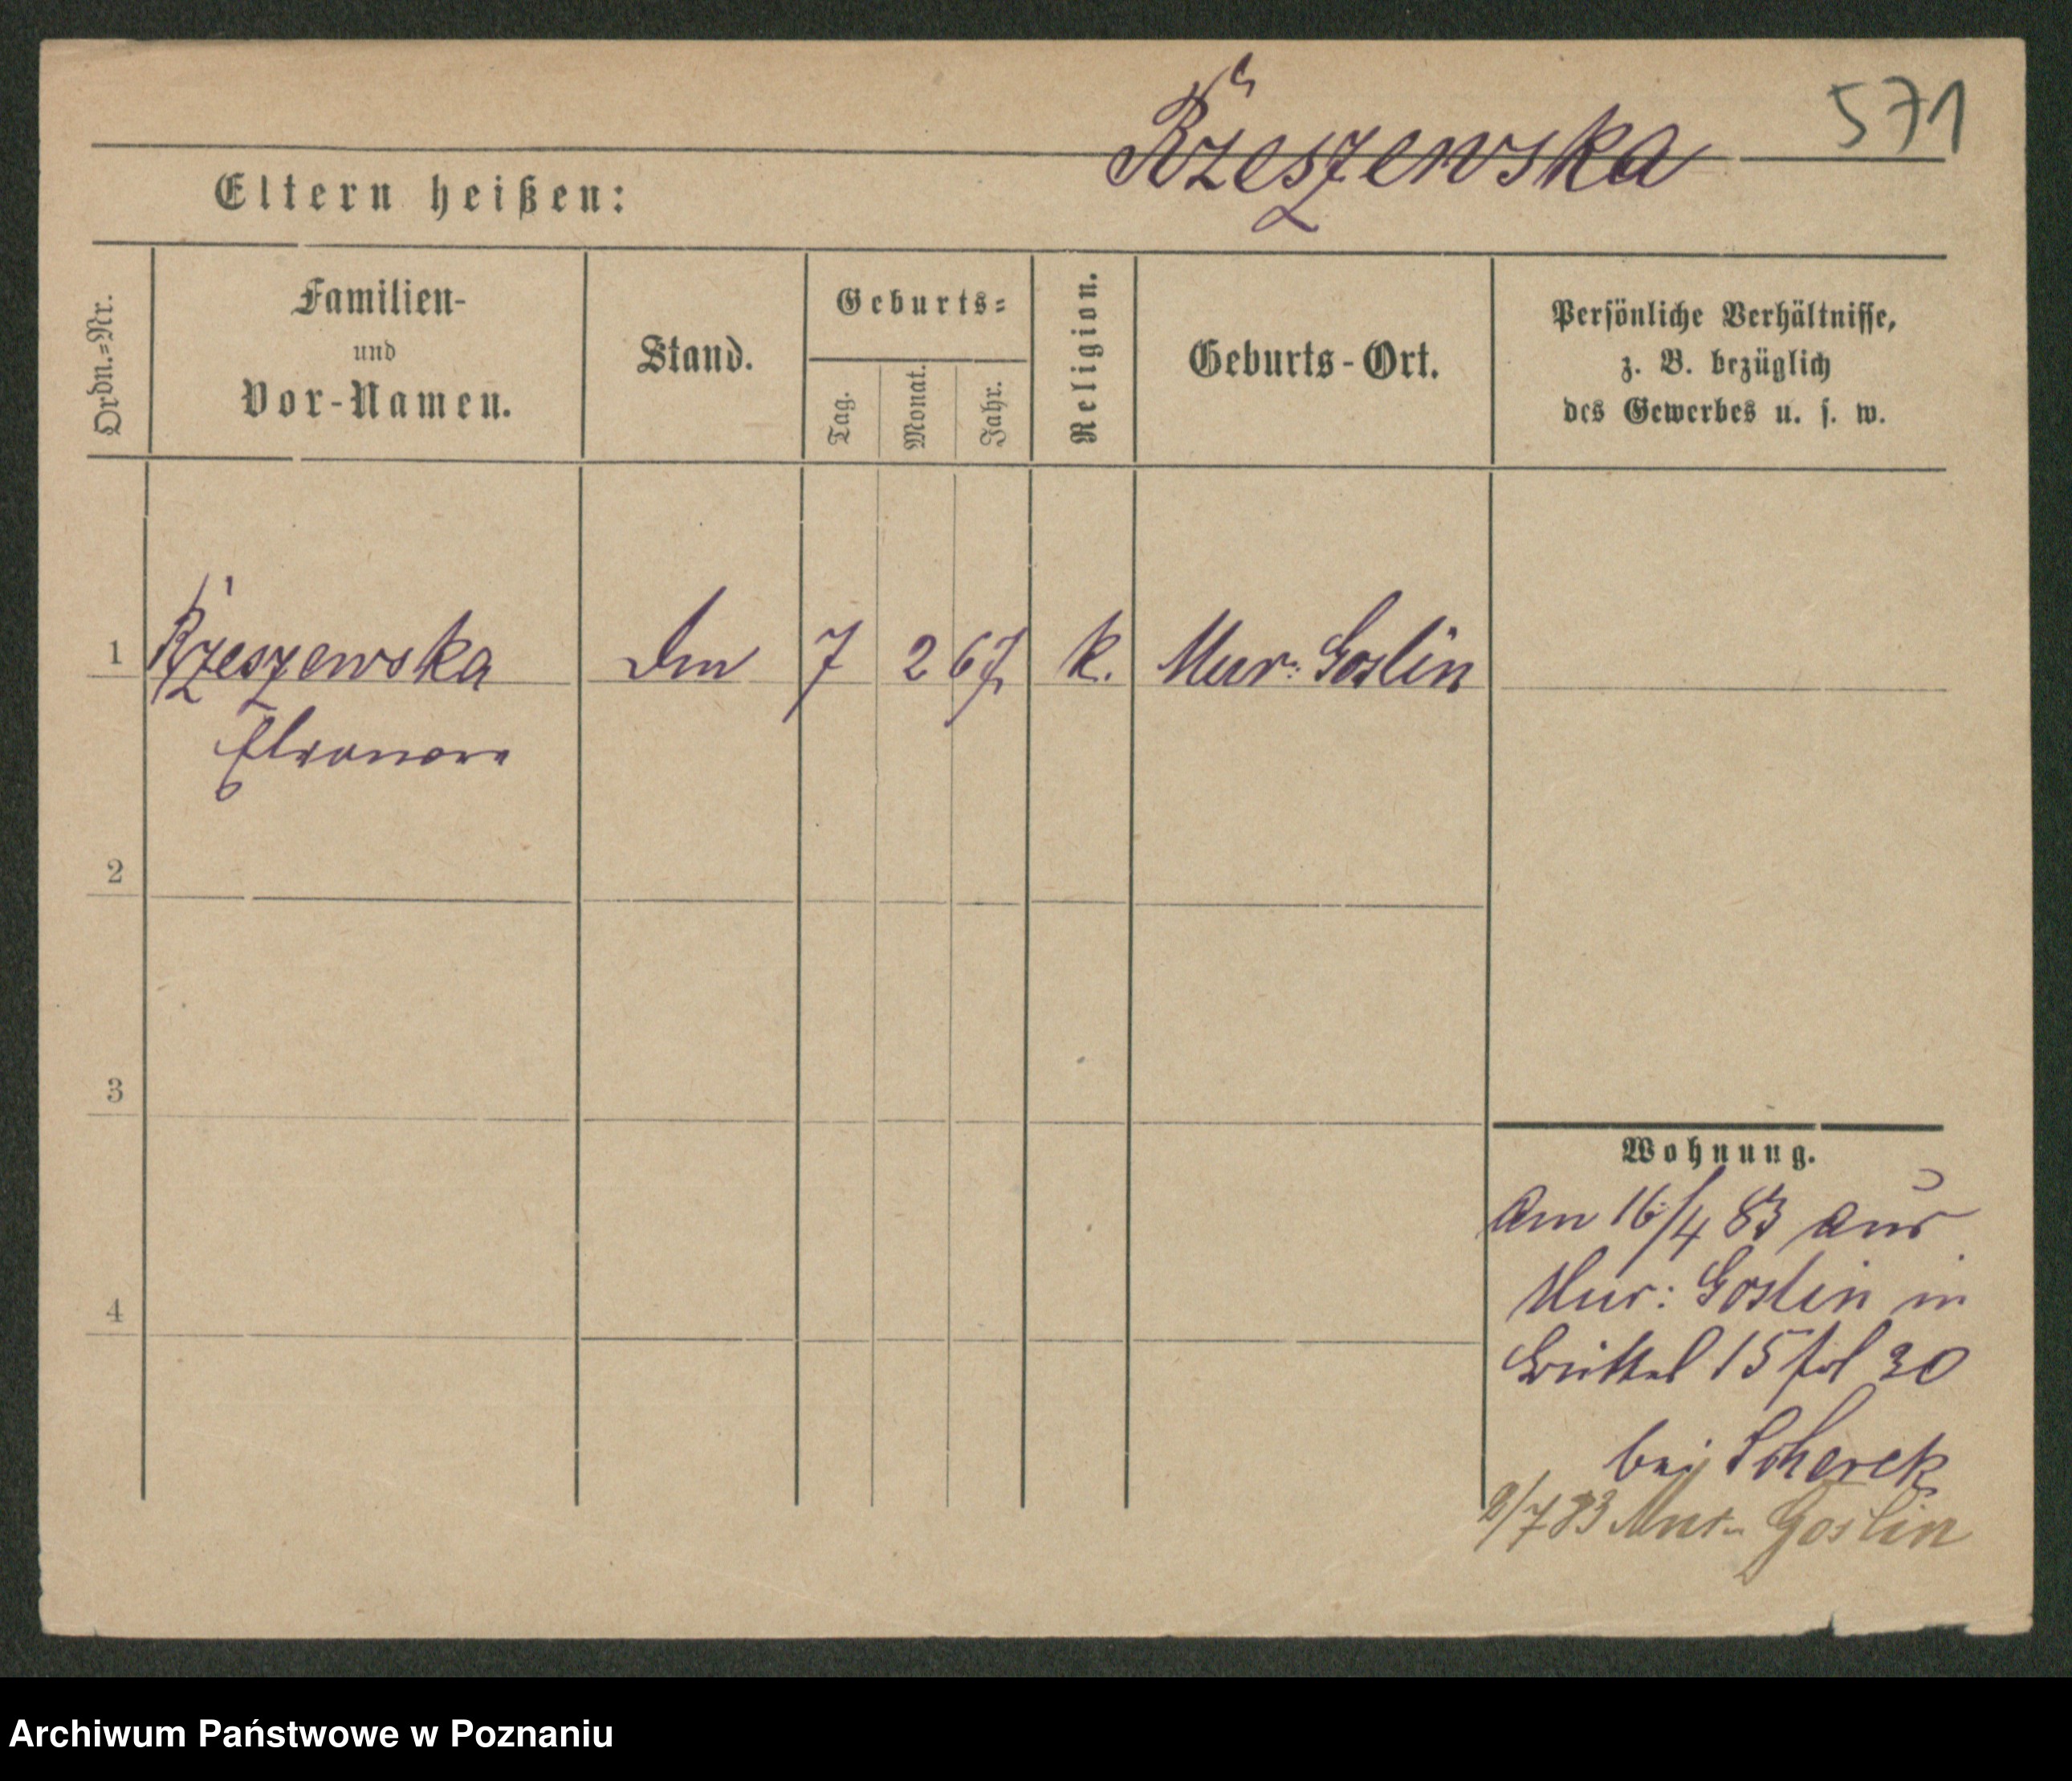 Rzeszewska
571
Eltern heißen:
Ordn.=Nr.
Familien-
und
Vor-Namen.
Stand.
Geburts=
Tag.
Monat.
Jahr.
Religion.
Geburts-Ort.
Persönliche Verhältnisse,
z. B. bezüglich
des Gewerbes u. s. w.
1 Rzeszewska 7 2 67 k. Mur: Goslin
Eleonora
2
3
4
Wohnung.
Am 16/4 83 aus
Mur: Goslin in
15 30
bei Scherek
2/7 83 Mur. Goslin
Archiwum Państwowe w Poznaniu